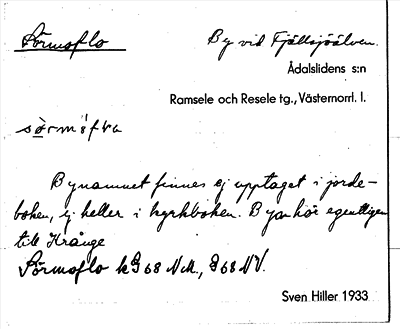 Sörmoflo
By vid Fjällsjöälven.
Ådalslidens s:n
Ramsele och Resele tg., Västernorrl. l.
Bynamnet finnes ej upptaget i jorde-
boken, ej heller i kyrkboken. Byn hör egentligen
till Krånge
Sörmoflo kG 68 NV.
Sven Hiller 1933